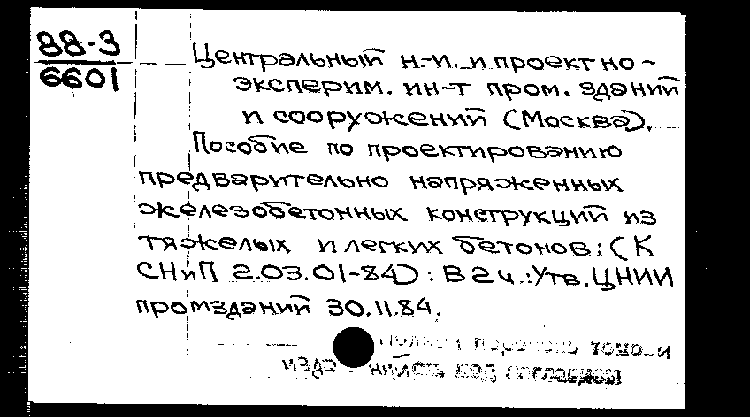 88-3
6601
Центральный н-и. и проектно-
эксперим. ин-т пром. зданий
и сооружений (Москва).
Пособие по проектированию
предварительно напряженных
железобетонных конструкций из
тяжелых и легких бетонов: (К
СНиП 2.03.01-84): В 2 ч.: Утв. ЦНИИ
промзданий 30.11.84.
томов и
под заглавием